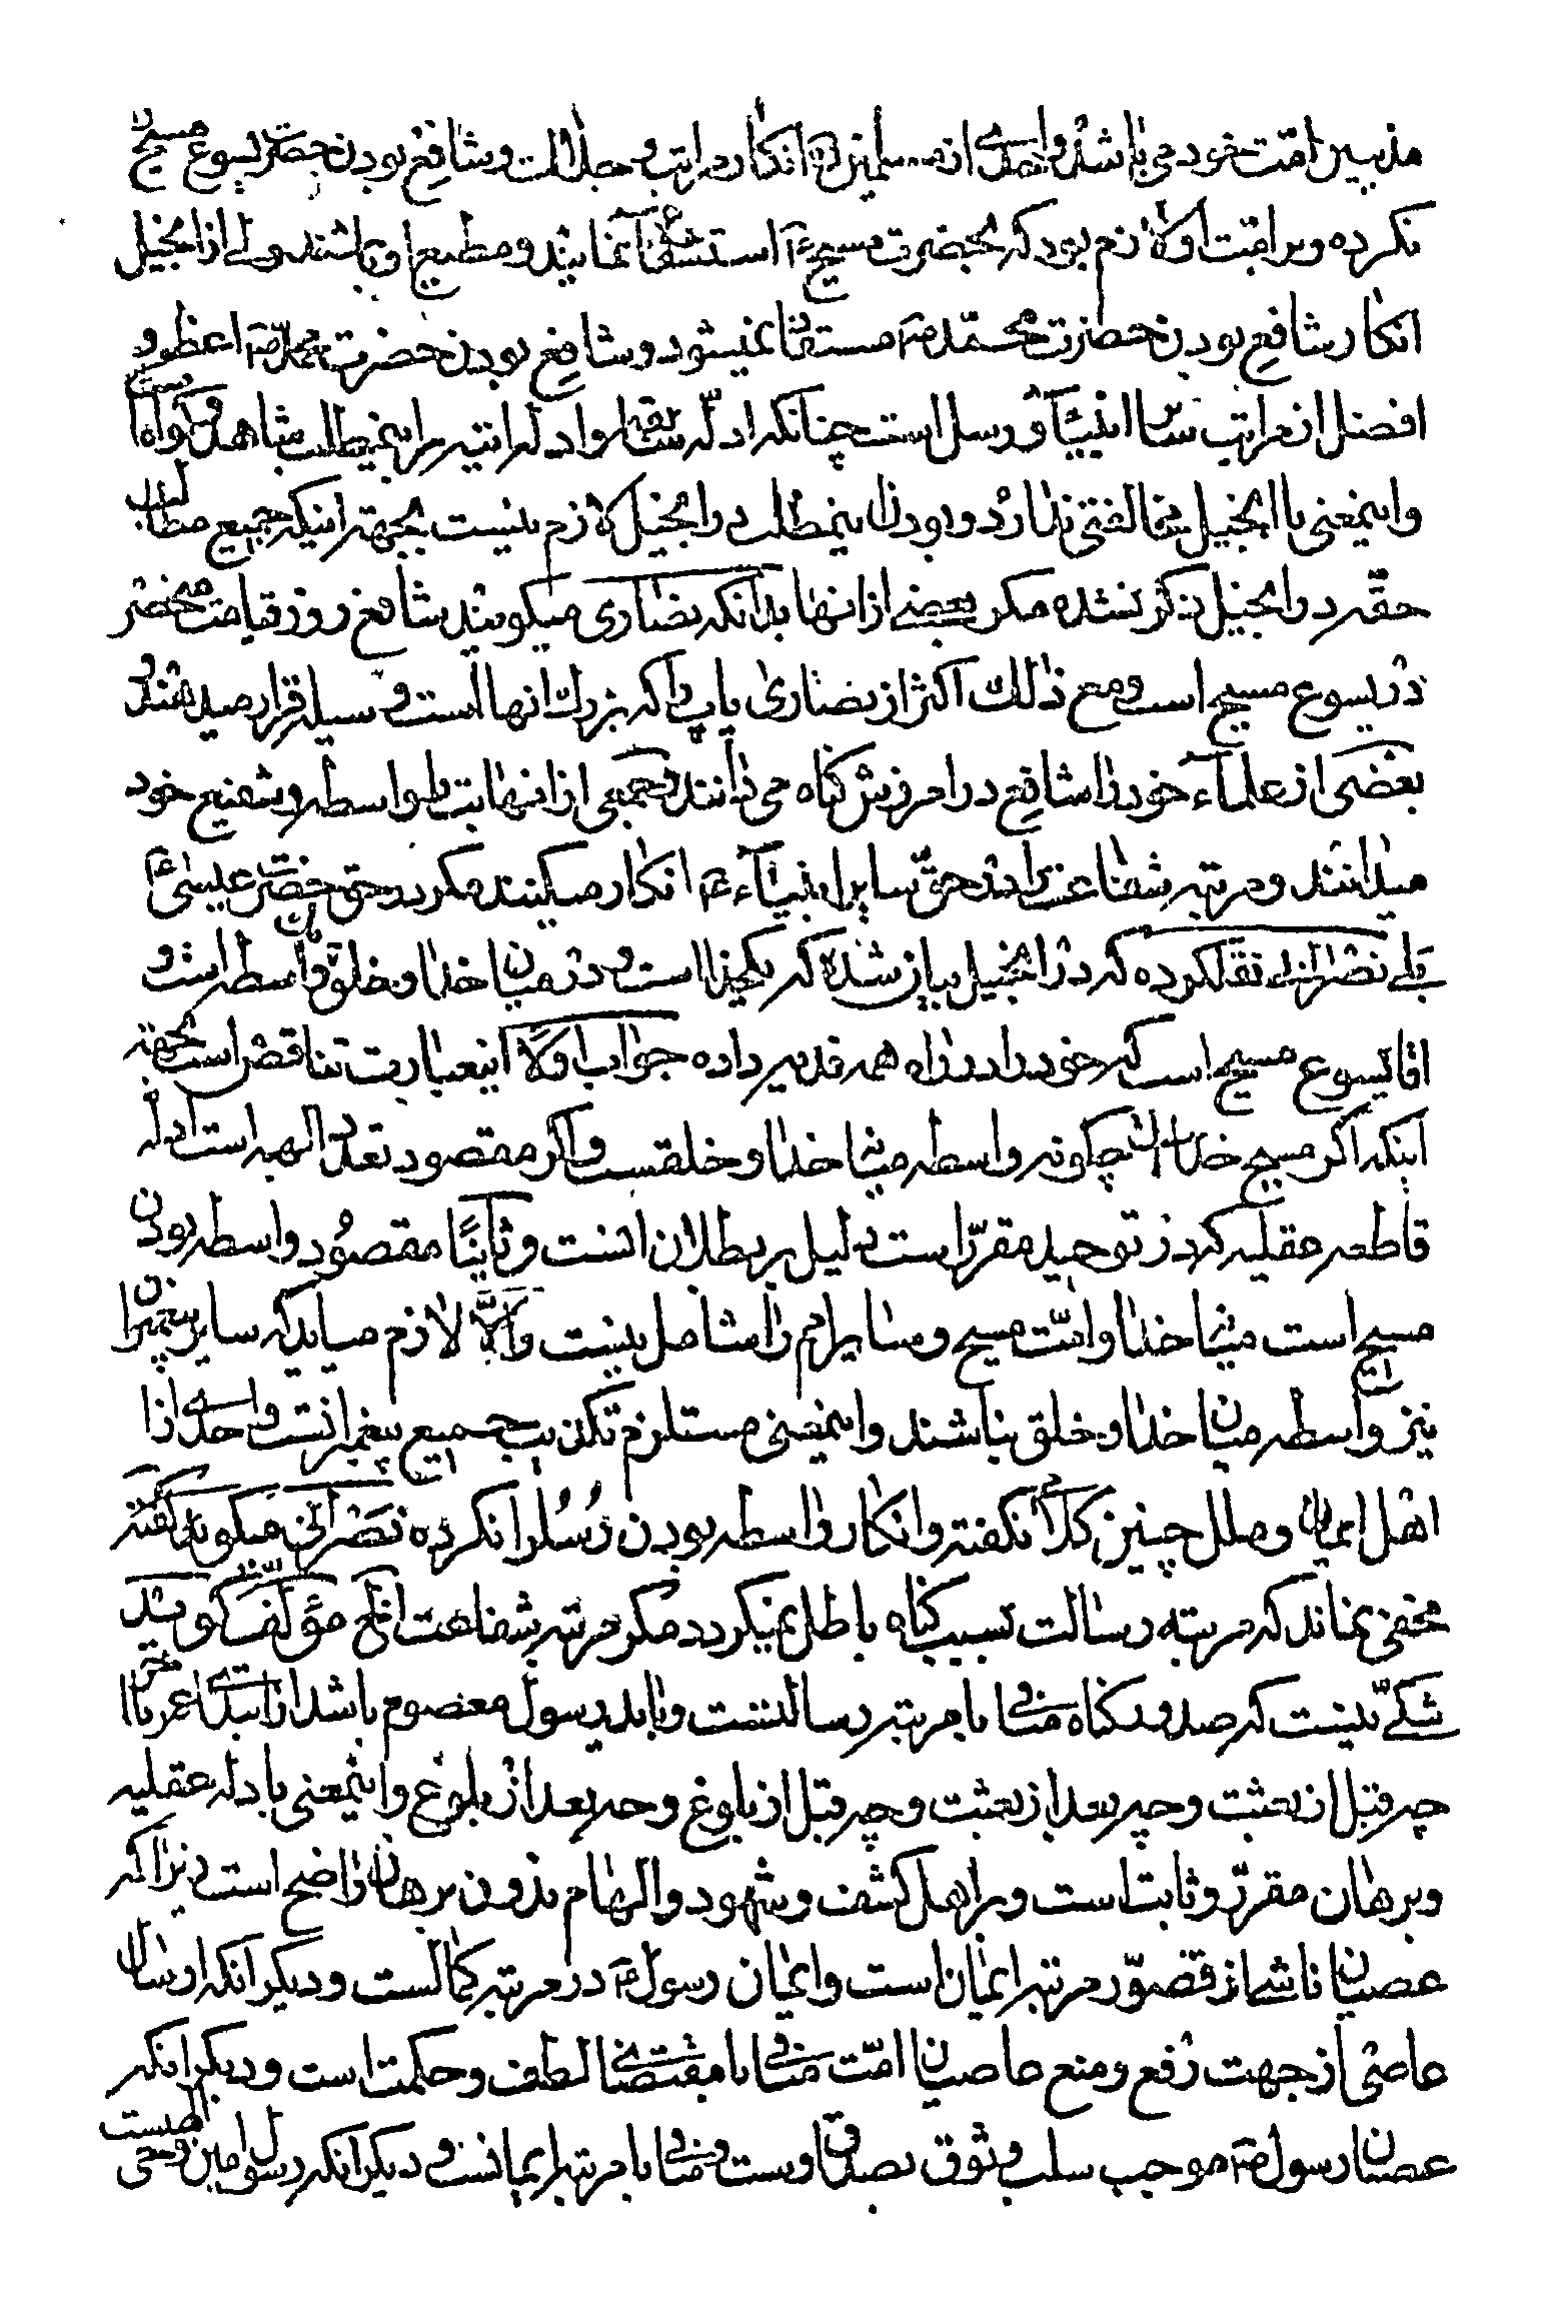 مذنبین امّت خود می باشند و احدی از مسلمین انکار مراتب و جلالت و شافع بودن حضرت یسوع مسیح را
نکرده و بر امّت او لازم بود که بحضرت مسیح ع استشفاع نمایند و مطیع او باشند ولی از انجیل
انکار شافع بودن حضرت محمّد ص مستفاد نمیشود و شافع بودن حضرت محمّد ص اعظم و
افضل از مراتب سایر انبیآء و رسل است چنانکه ادلّه سابقه و ادله اتیه بر اینمطلب شاهد و گواه است
و اینمعنی با انجیل مخالفتی ندارد و بودن اینمطلب در انجیل لازم نیست بجهة اینکه جمیع مطالب
حقّه در انجیل ذکر نشده مگر بعضی از انها بدانکه نصاری میگویند شافع روز قیامت منحصر
در یسوع مسیح است و مع ذلک اکثر از نصاری پاپ را که بزرک انها است وسیله قرار میدهند و
بعضی از علمآء خود را شافع در امرزش کناه می دانند و جمعی از انها بت را واسطه و شفیع خود
میدانند و مرتبه شفاعت را در حقّ سایر انبیآء ع انکار میکنند مکر در حق حضرت عیسی ع
قوله نصرانی نقلکرده که در انجیل بیان شده که یکخدا است و در میان خدا و خلق یک واسطه است و
اقا یسوع مسیح است که خود را در راه همه فدیه داده جواب اولا اینعبارت تناقض است بجهة
اینکه اکر مسیح خدا است چکونه واسطه میان خدا و خلقست و اکر مقصود تعدد الهه است ادله
قاطعه عقلیه که در توحید مقرّر است دلیل بر بطلان انست و ثانیًا مقصُود واسطه بودن
مسیح است میان خدا و امّت مسیح و سایر امم را شامل نیست و اِلّا لازم میاید که سایر پیغمبران
نیز واسطه میان خدا و خلق نباشند و اینمعنی مستلزم تکذیب جمیع پیغمبرانست و احدی از
اهل ایمان و ملل چنین کلام نکفته و انکار واسطه بودن رُسُل را نکرده نصرانی میکوید
مخفی نماند که مرتبه رسالت بسبب کناه باطل نمیکردد مکر مرتبه شفاعت الخ مؤلف کوید
شکّی نیست که صدور کناه منافی با مرتبه رسالتست و باید رسول معصوم باشد از ابتدای عمر تا اخر
چه قبل از بعثت و چه بعد از بعثت و چه قبل از بلوغ و چه بعد از بلوغ و اینمعنی بادله عقلیه
و برهان مقرّر و ثابت است و بر اهل کشف و شهود و الهام بدون برهان واضح است زیرا که
عصیان ناشی از قصور مرتبه ایمان است و ایمان رسول ص در مرتبه کمالست و دیکر انکه ارسال
عاصی از جهت رفع و منع عاصیان امّت منافی با مقتضای لطف و حکمت است و دیکر انکه
عصیان رسول ص موجب سلب وثوق بصدق اوست و منافی با مرتبه ایمانست و دیکر انکه رسول امین وحی الهیست